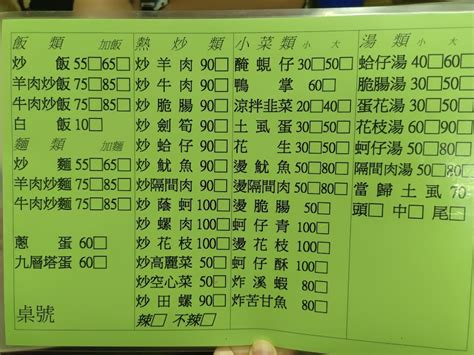 飯類 加飯
炒飯 55□65□
羊肉炒飯 75□85□
牛肉炒飯 75□85□
白飯 10□
麵類 加麵
炒麵 55□65□
羊肉炒麵 75□85□
牛肉炒麵 75□85□
蔥蛋 60□
九層塔蛋 60□
桌號
熱炒類
炒羊肉 90□
炒牛肉 90□
炒脆腸 90□
炒劍筍 90□
炒蛤仔 90□
炒魷魚 90□
炒隔間肉 90□
炒蔭蚵 100□
炒螺肉 100□
炒花枝 100□
炒高麗菜 50□
炒空心菜 50□
炒田螺 90□
辣□ 不辣□
小菜類 小 大
醃蜆仔 30□50□
鴨掌 60□
涼拌韭菜 20□40□
土虱蛋 30□50□
花生 30□50□
燙魷魚 50□80□
燙隔間肉 50□80□
燙脆腸 50□
蚵仔青 100□
燙花枝 100□
蚵仔酥 100□
炸溪蝦 80□
炸苦甘魚 80□
湯類 小 大
蛤仔湯 40□60□
脆腸湯 30□50□
蛋花湯 30□50□
花枝湯 50□80□
蚵仔湯 50□80□
隔間肉湯 50□80□
當歸土虱 70□
頭□ 中□ 尾□